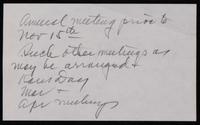 Annual meeting prior to
Nov 15th
Such other meetings as
may be arranged +
Day
Mar +
Apr meetings